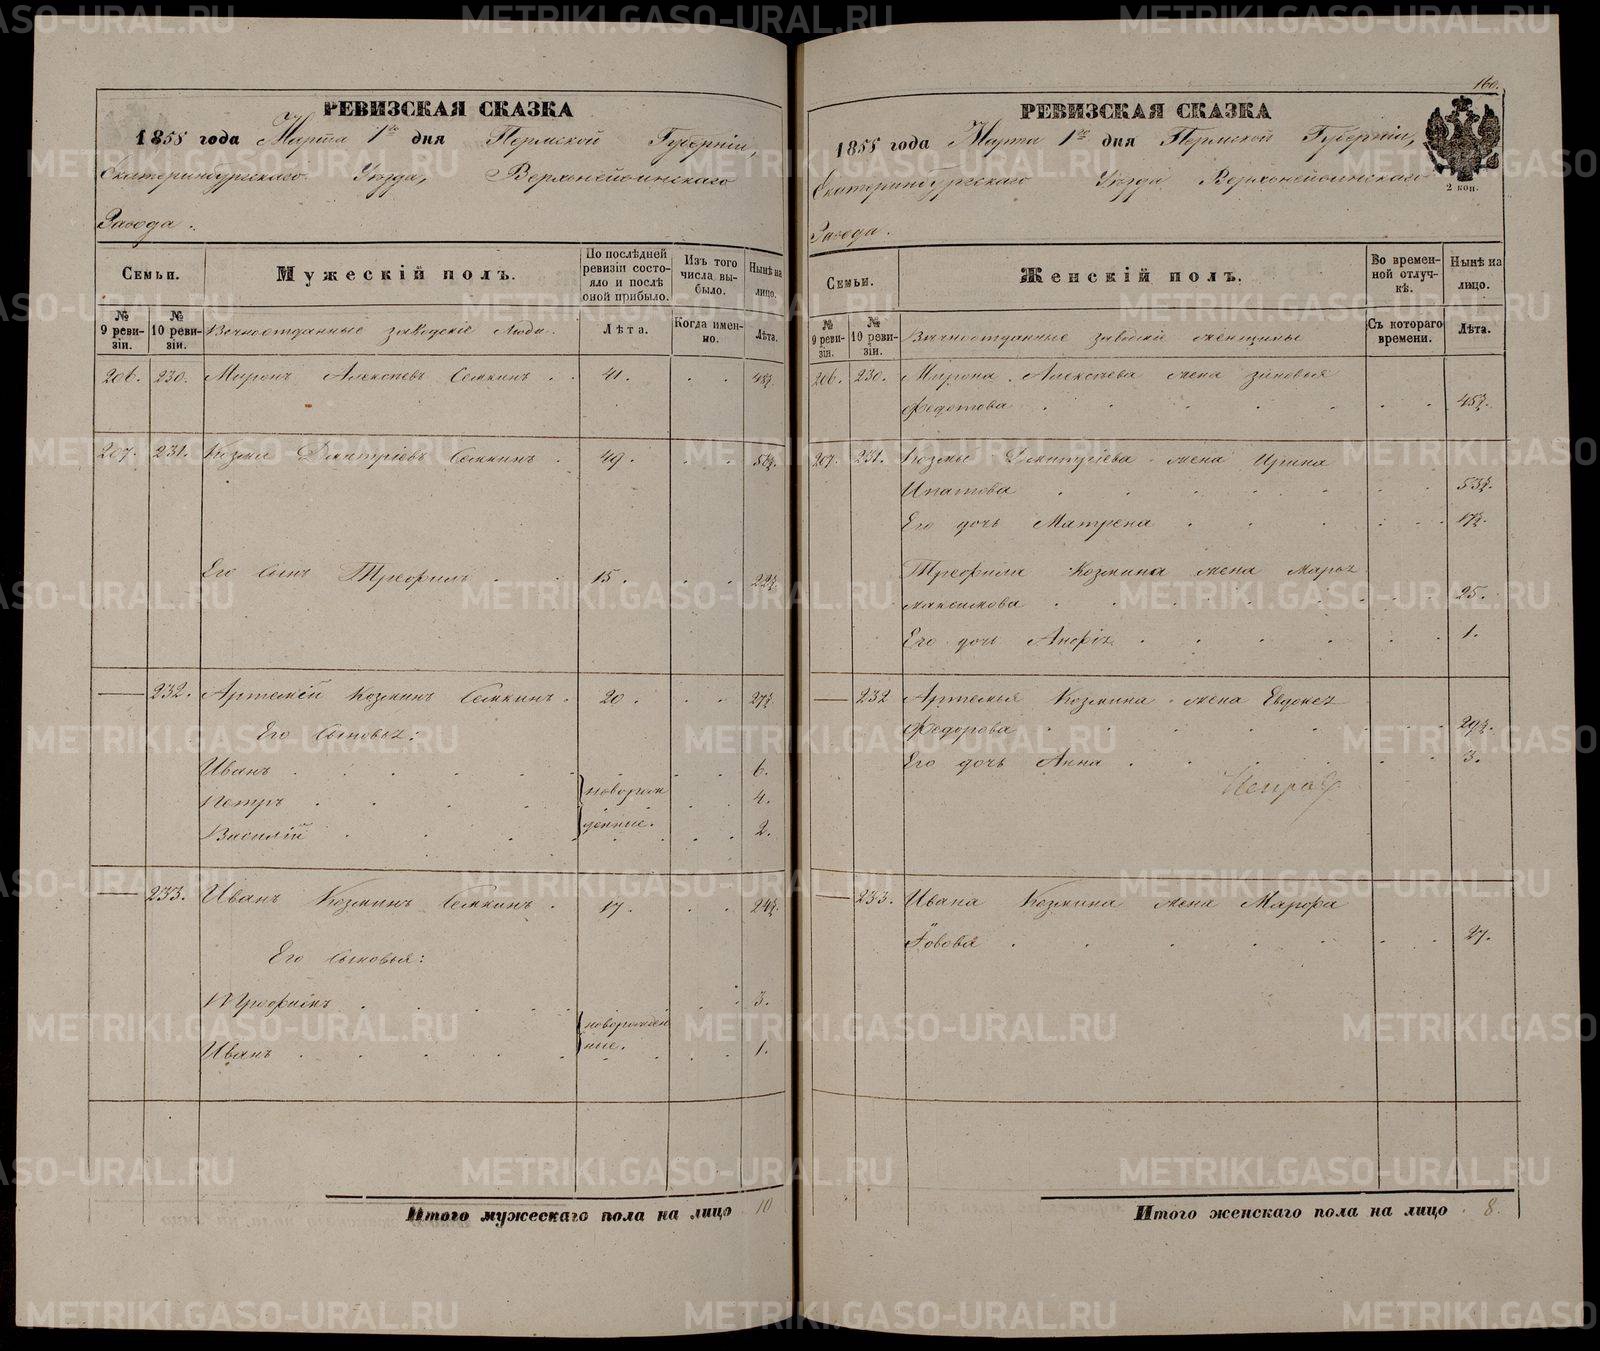 РЕВИЗСКАЯ СКАЗКА
1858 года Марта 1го дня Пермской Губерніи,
Екатеринбургскаго Уѣзда, Верхонейвинскаго
Завода.
Семьи.
Мужескій полъ.
По послѣдней ревизіи состояло и послѣ оной прибыло.
Изъ того числа выбыло.
Нынѣ на лицо.
№ 9 ревизіи.
№ 10 ревизіи.
Вѣчноотданные заводскіе люди.
Лѣта.
Когда именно.
Лѣта.
206. 230. Миронъ Алексѣевъ Семкинъ . 41. . . 48½.
207. 231. Козма Дмитріевъ Семкинъ . 49. . .
Его сынъ Трефилъ . . 15. . . 22½.
— 232. Артемій Козминъ Семкинъ . 20. . . 27½.
Его сыновья:
Иванъ . . . . . 6.
Петръ . . . . новорож 4.
Василій . . . . денные. 2.
— 233. Иванъ Козминъ Семкинъ . 17. . . 24½.
Его сыновья:
Трофимъ . . . . 3.
новорожден
Иванъ . . . . ные. 1.
Итого мужескаго пола на лицо 10
160.
РЕВИЗСКАЯ СКАЗКА
1858 года Марта 1го дня Пермской Губерніи,
Екатеринбургскаго Уѣзда Верхонейвинскаго
2 коп.
Завода.
Семьи.
Женскій полъ.
Во временной отлучкѣ.
Нынѣ на лицо.
№ 9 ревизіи.
№ 10 ревизіи.
Вѣчноотданные заводскіе женщины
Съ котораго времени.
Лѣта.
206. 230. Мирона Алексѣева жена Зиновья
Федотова . . . . . 45½.
207. 231. Козмы Дмитріева жена Ирина
Ипатова . . . . . 53½.
Его дочь Матрена . . . 17½.
Трефила Козмина жена Марья
Максимова . . . . . 25.
Его дочь Анфія . . . . 1.
— 232 Артемья Козмина жена Евдокея
Федорова . . . . . 29½.
Его дочь Анна . . . . 3.
— 233. Ивана Козмина жена Марфа
. . . . . 27.
Итого женскаго пола на лицо . 8.
METRIKI.GASO-URAL.RU